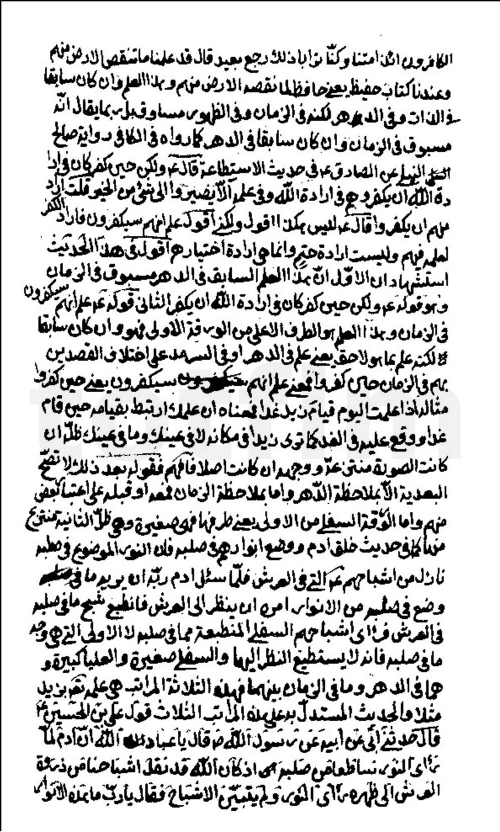 الكافرون ائذا متنا وكنّا ترابا ذلك رجع بعيد قال قد علمنا ما تنقص الارض منهم
وعندنا كتاب حفيظ يعنى حافظ لما تنقصه الارض منهم وهذا العلم وان كان سابقا
فى الذات وفى الدهر لكنه فى الزمان وفى الظهور مساوق قبل بما يقال انّه
مسبوق فى الزمان وان كان سابقا فى الدهر كما رواه فى الكافى رواية صالح
النيلى عن الصادق ع فى حديث الاستطاعة قال ع ولكن حين كفر كان فى ارا
دة اللّه ان يكفر وهم فى ارادة اللّه وفى علمه الّا يصيروا الى شئ من الخير قلت اراد
منهم ان يكفروا قال ع ليس هكذا اقول ولكن اقول علم انهم سيكفرون فاراد الكفر
لعلمه فيهم وليست ارادة حتم وانما هى ارادة اختيار هم اقول فى هذا الحديث
استشهاد ان الاول انّ هذا العلم السابق فى الدهر مسبوق فى الزمان
وهو قوله ع ولكن حين كفر كان فى ارادة اللّه ان يكفر الثانى قوله ع علم انهم سيكفرون
فى الزمان وهذا العلم هو الطرف الاعلى من الورقة الاولى فهو وان كان سابقا
لكنه علم بما هو لاحق يعنى علم فى الدهر او فى السرمد على اختلاف القصدين
بهم فى الزمان حين كفروا فمعنى علم انهم سيكفرون يعنى حين كفروا
مثاله اذا علمت اليوم قيام زيد غدا فمعناه ان علمك ارتبط بقيامه حين قام
غدا ووقع عليه فى الغد كما ترى زيدا فى مكانه لا فى عينك وما فى عينك ظلّ ان
كانت الصورة منتزعة ووجهه ان كانت اصلا فافهم فقوله بعد ذلك لا تصحّ
البعدية الّا بملاحظة الدّهر واما بملاحظة الزمان فمعه او قبله على اعتبار بعض
منهم واما الورقة السفلى من الاولى يعنى طرفها فهى صغيرة وهى ظلّ الثانية منتزع
منها كما فى حديث خلق ادم ووضع انوارهم فى صلبه فلان النور الموضوع فى صلبه
نازل من اشباحهم ع التى فى العرش فلمّا سئل ادم ربّه ان يريه ما فى
وضع فى صلبه من الانوار امره ان ينظر الى العرش فانطبع شبح ما فى صلبه
فى العرش فرأى اشباحهم السفلى المنطبعة مما فى صلبه لا الاولى التى هى وجه
ما فى صلبه فانه لا يستطيع النظر اليها والسفلى صغيرة والعليا كبيرة و
هما فى الدهر وما فى الزمان بينهما فهذه الثلاثة المراتب هى علمه تع بزيد
مثلا والحديث المستدل به على هذه المراتب الثلاث قول على بن الحسين ع
قال حدثنى ابى عن ابيه عن رسول اللّه ص قال يا عباد اللّه ان ادم لمّا
رأى النور ساطعا من صلبه اذ كان اللّه قد نقل اشباحنا من ذروة
العرش الى ظهره رأى النور ولم يتبيّن الاشباح فقال يا ربّ ما هذه الانوار